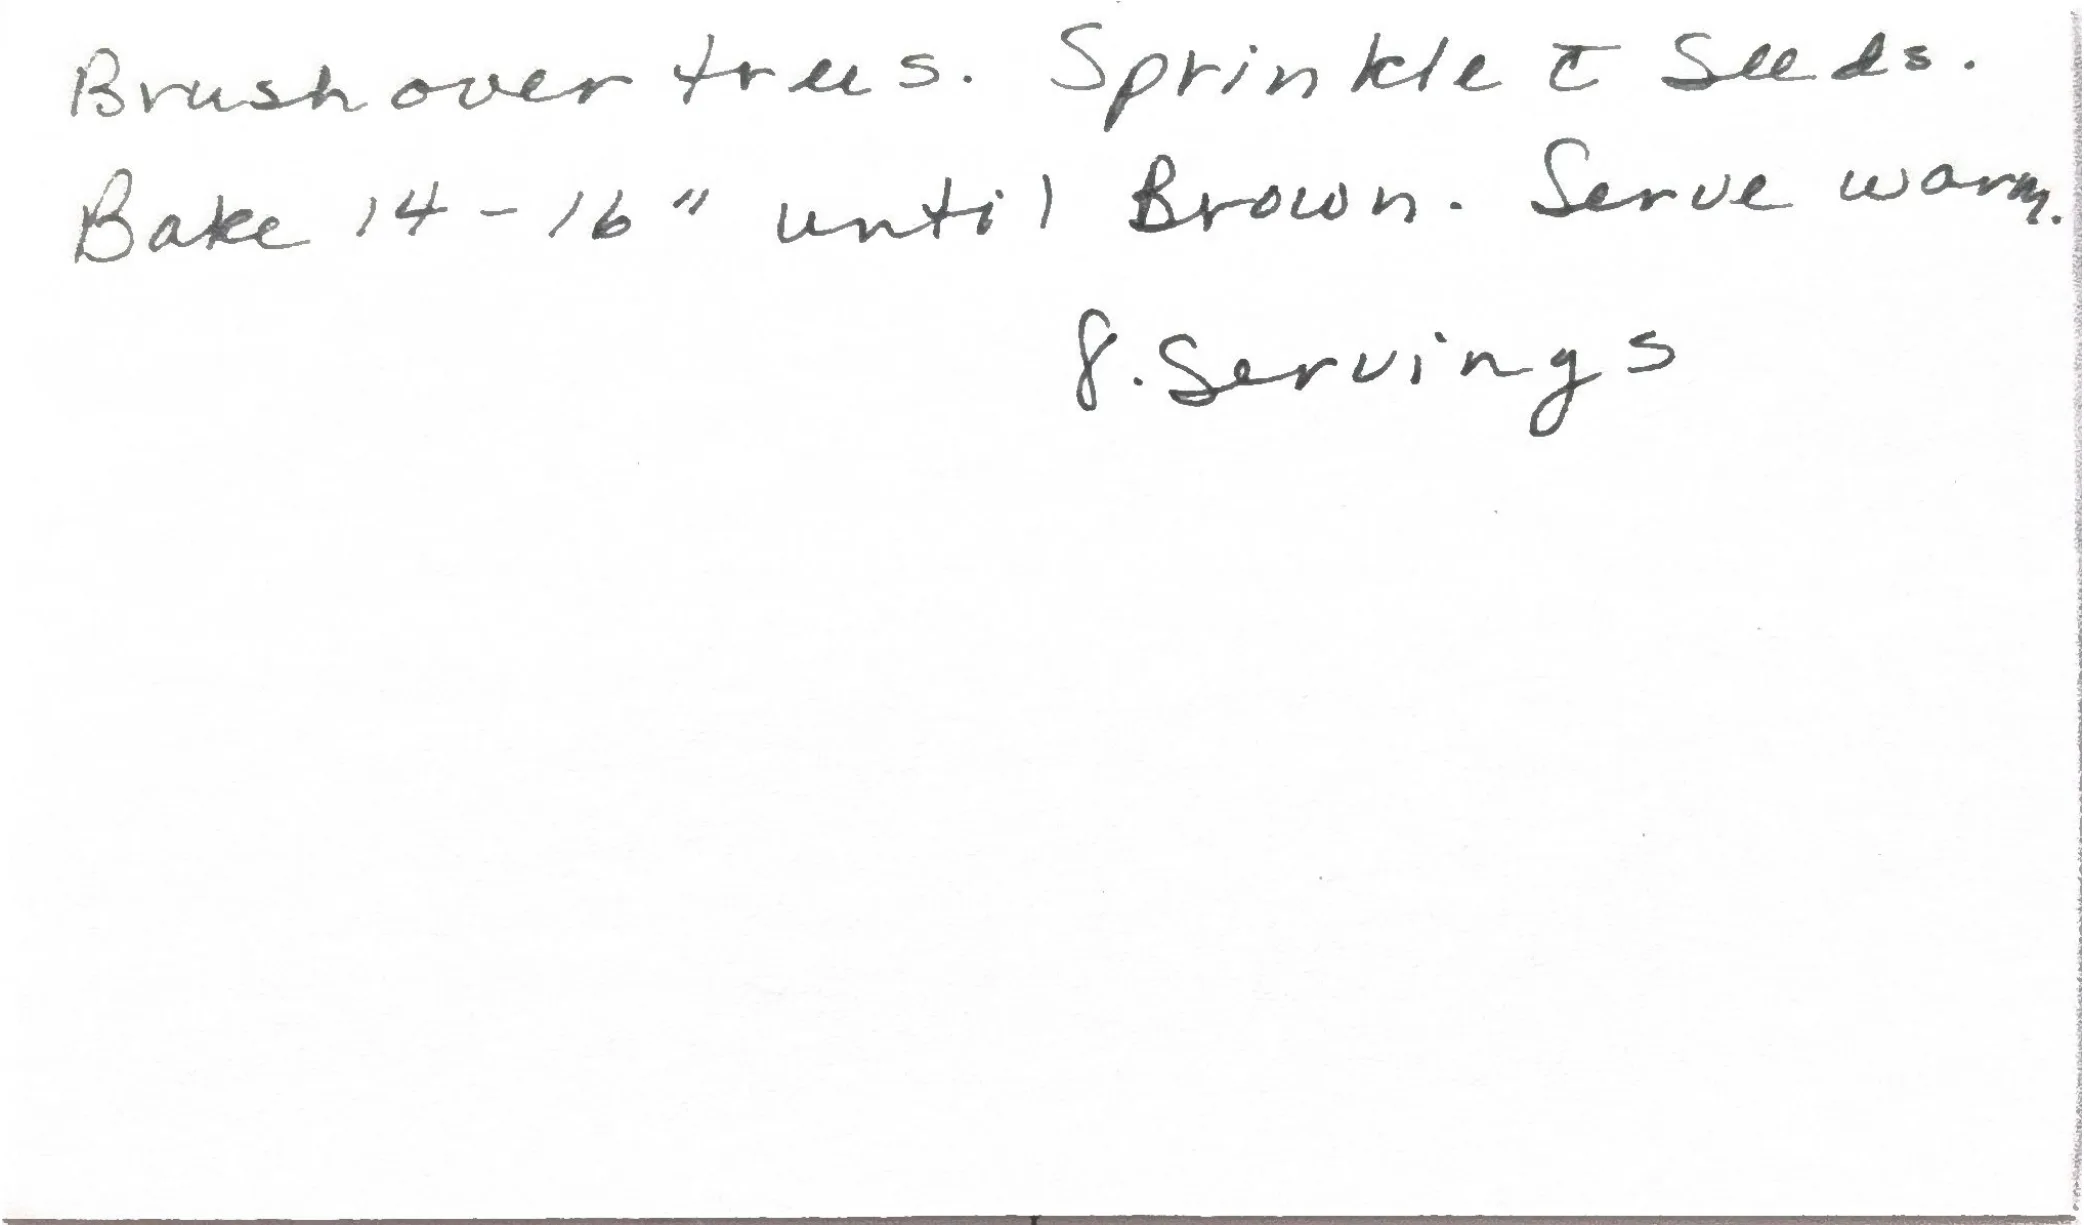 Brush over trees. Sprinkle c̄ Seeds.
Bake 14-16" until Brown. Serve warm.
8. Servings